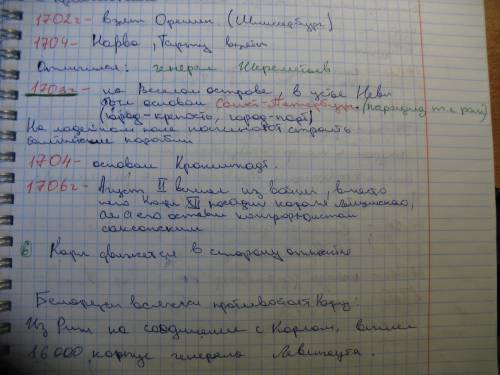 1702г - взят Орешек (Шлиссельбург)
1704 - Нарва, Тарту взяты
Отличился: генерал Шереметьев
1703г - на Веселом острове, в устье Невы
был основан Санкт-Петербург. (парадиз т.е рай)
(город-крепость, город-порт)
На лодейном поле начинают строить
балтийские корабли
1704 - основан Кронштадт.
1706г - Август II вышел из войны, вместо
него Карл XII посадил короля Лещинского,
а его оставил курфюрстом
саксонским
Карл движется в сторону
Белорусы всячески противостоят Карлу:
Из Риги на соединение с Карлом, вышел
16000, корпус генерала Левенгаупта.